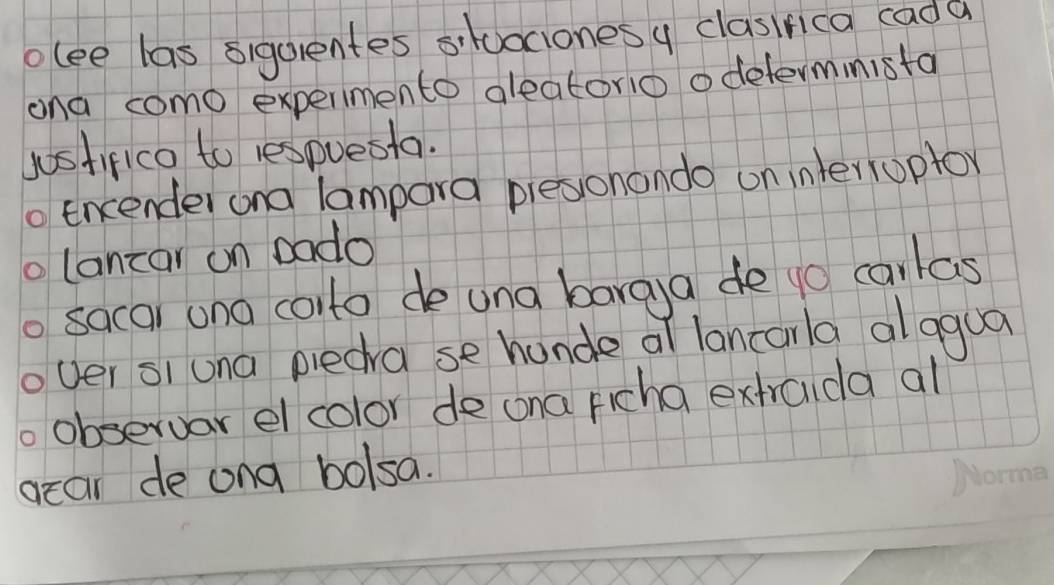 o lee las siguientes situaciones y clasifica cada
una como experimento aleatorio o determinista
justifica tu respuesta.
o Encender una lampara presionando un interruptor
o lanzar un dado
o sacar una carta de una baraja de 40 cartas
o ver si una piedra se hunde al lanzarla al agua
o observar el color de una ficha extraida al
azar de una bolsa.
Norma